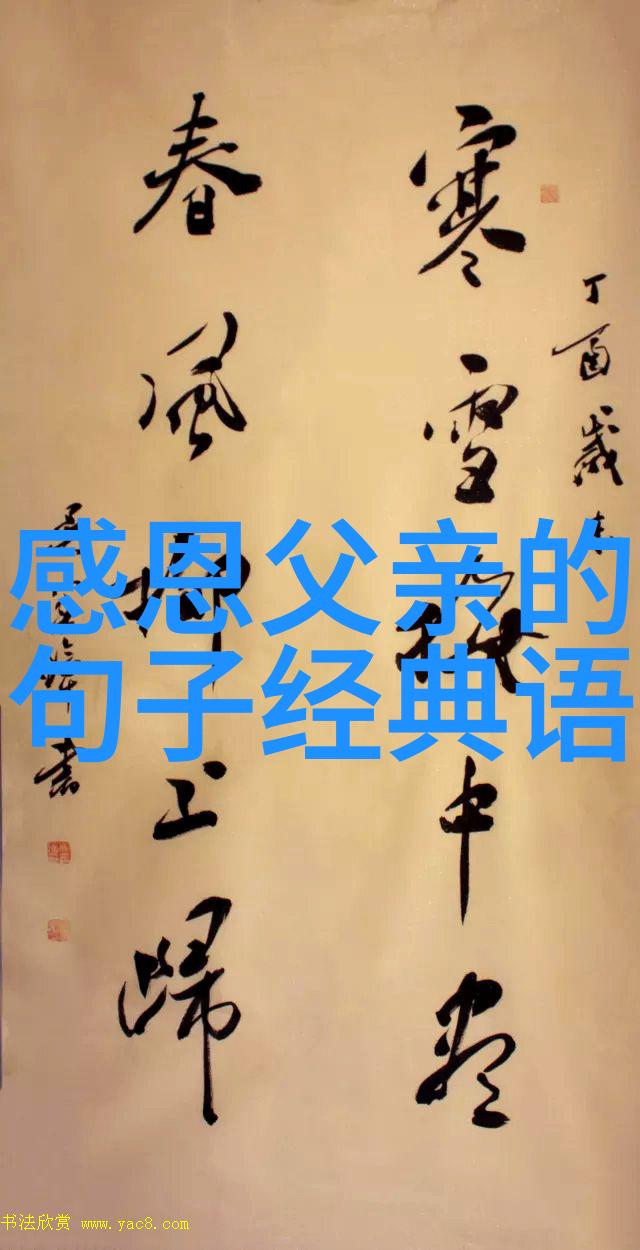 丁酉歲
寒雪梅中尽
春風柳上歸
書
感恩父亲的
句子经典语
书法欣赏 www.yac8.com